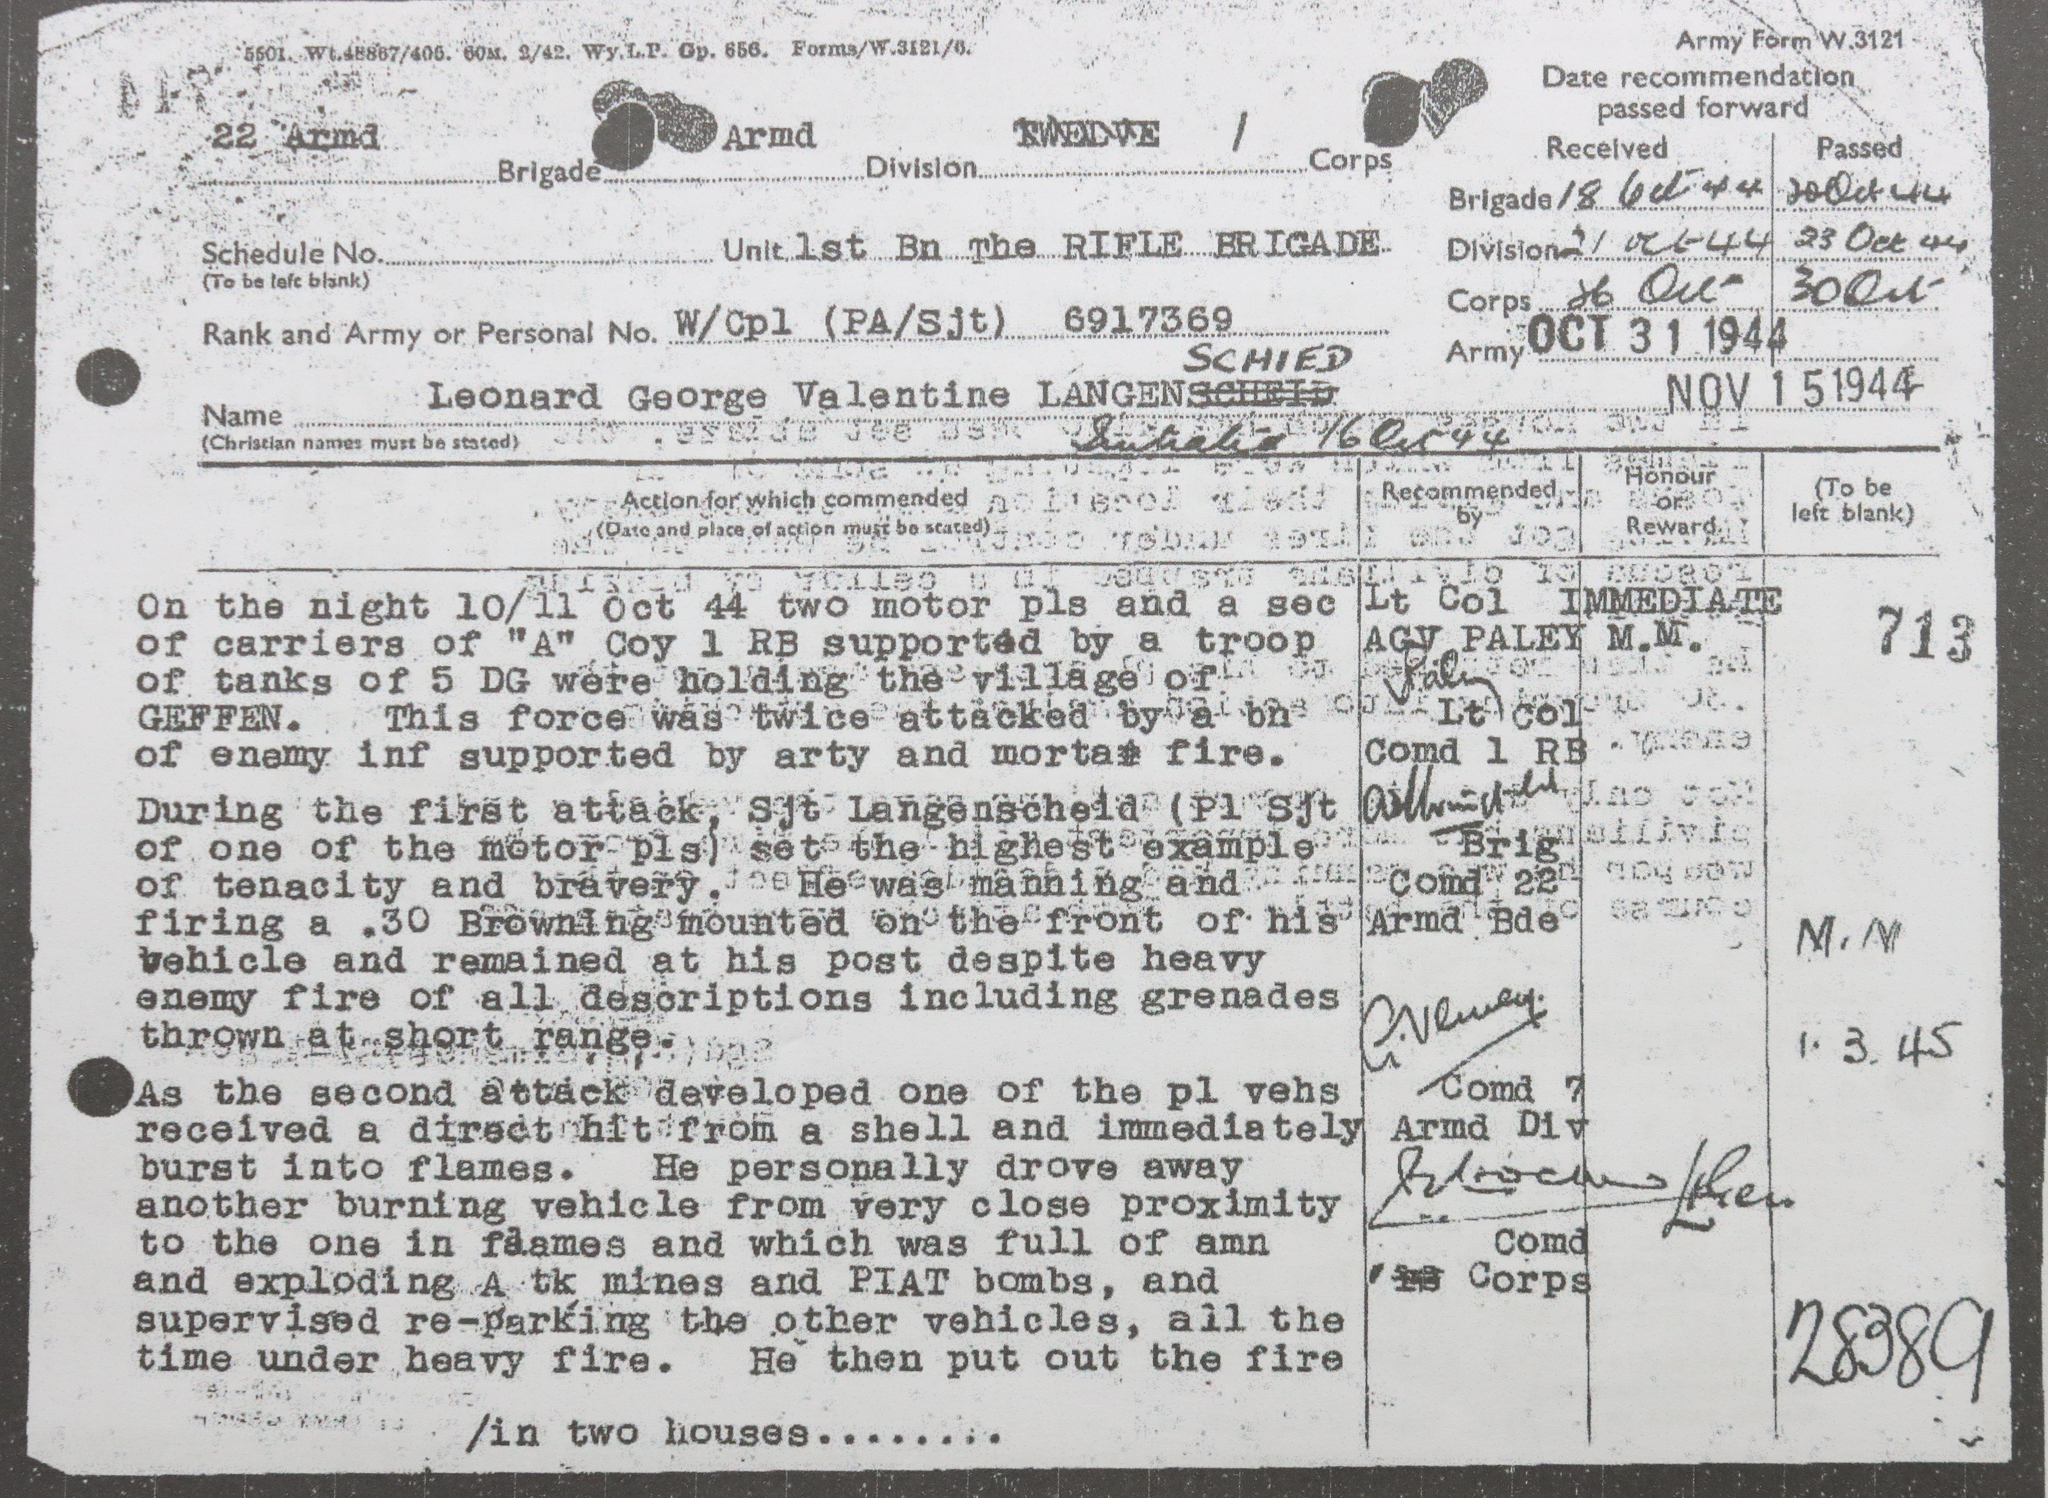 5501. Wt.48867/405. 60M. 2/42. Wy.L.P. Gp. 656. Forms/W.3121/6.
Army Form W.3121
Date recommendation
passed forward
Received Passed
22 Armd Brigade Armd Division TWELVE 1 Corps
Brigade 18 Oct 44 20 Oct 44
Schedule No. Unit 1st Bn The RIFLE BRIGADE
(To be left blank)
Division 21 Oct 44 23 Oct 44
Corps 26 Oct 30 Oct
Rank and Army or Personal No. W/Cpl (PA/Sjt) 6917369
Army OCT 31 1944
SCHIED
Name Leonard George Valentine LANGENSCHEID
NOV 15 1944
(Christian names must be stated)
16 Oct 44
Action for which commended
(Date and place of action must be stated)
Recommended
by
Honour
or
Reward
(To be
left blank)
On the night 10/11 Oct 44 two motor pls and a sec
of carriers of "A" Coy 1 RB supported by a troop
of tanks of 5 DG were holding the village of
GEFFEN. This force was twice attacked by a bn
of enemy inf supported by arty and mortar fire.
During the first attack, Sjt Langenscheid (Pl Sjt
of one of the motor pls) set the highest example
of tenacity and bravery. He was manning and
firing a .30 Browning mounted on the front of his
vehicle and remained at his post despite heavy
enemy fire of all descriptions including grenades
thrown at short range.
As the second attack developed one of the pl vehs
received a direct hit from a shell and immediately
burst into flames. He personally drove away
another burning vehicle from very close proximity
to the one in flames and which was full of amn
and exploding A tk mines and PIAT bombs, and
supervised re-parking the other vehicles, all the
time under heavy fire. He then put out the fire
/in two houses........
Lt Col
AGV PALEY
Paley
Lt Col
Comd 1 RB
Brig
Comd 22
Armd Bde
G. Verney.
Comd 7
Armd Div
Comd
Corps
IMMEDIATE
M.M.
713
M.M
1. 3. 45
28389